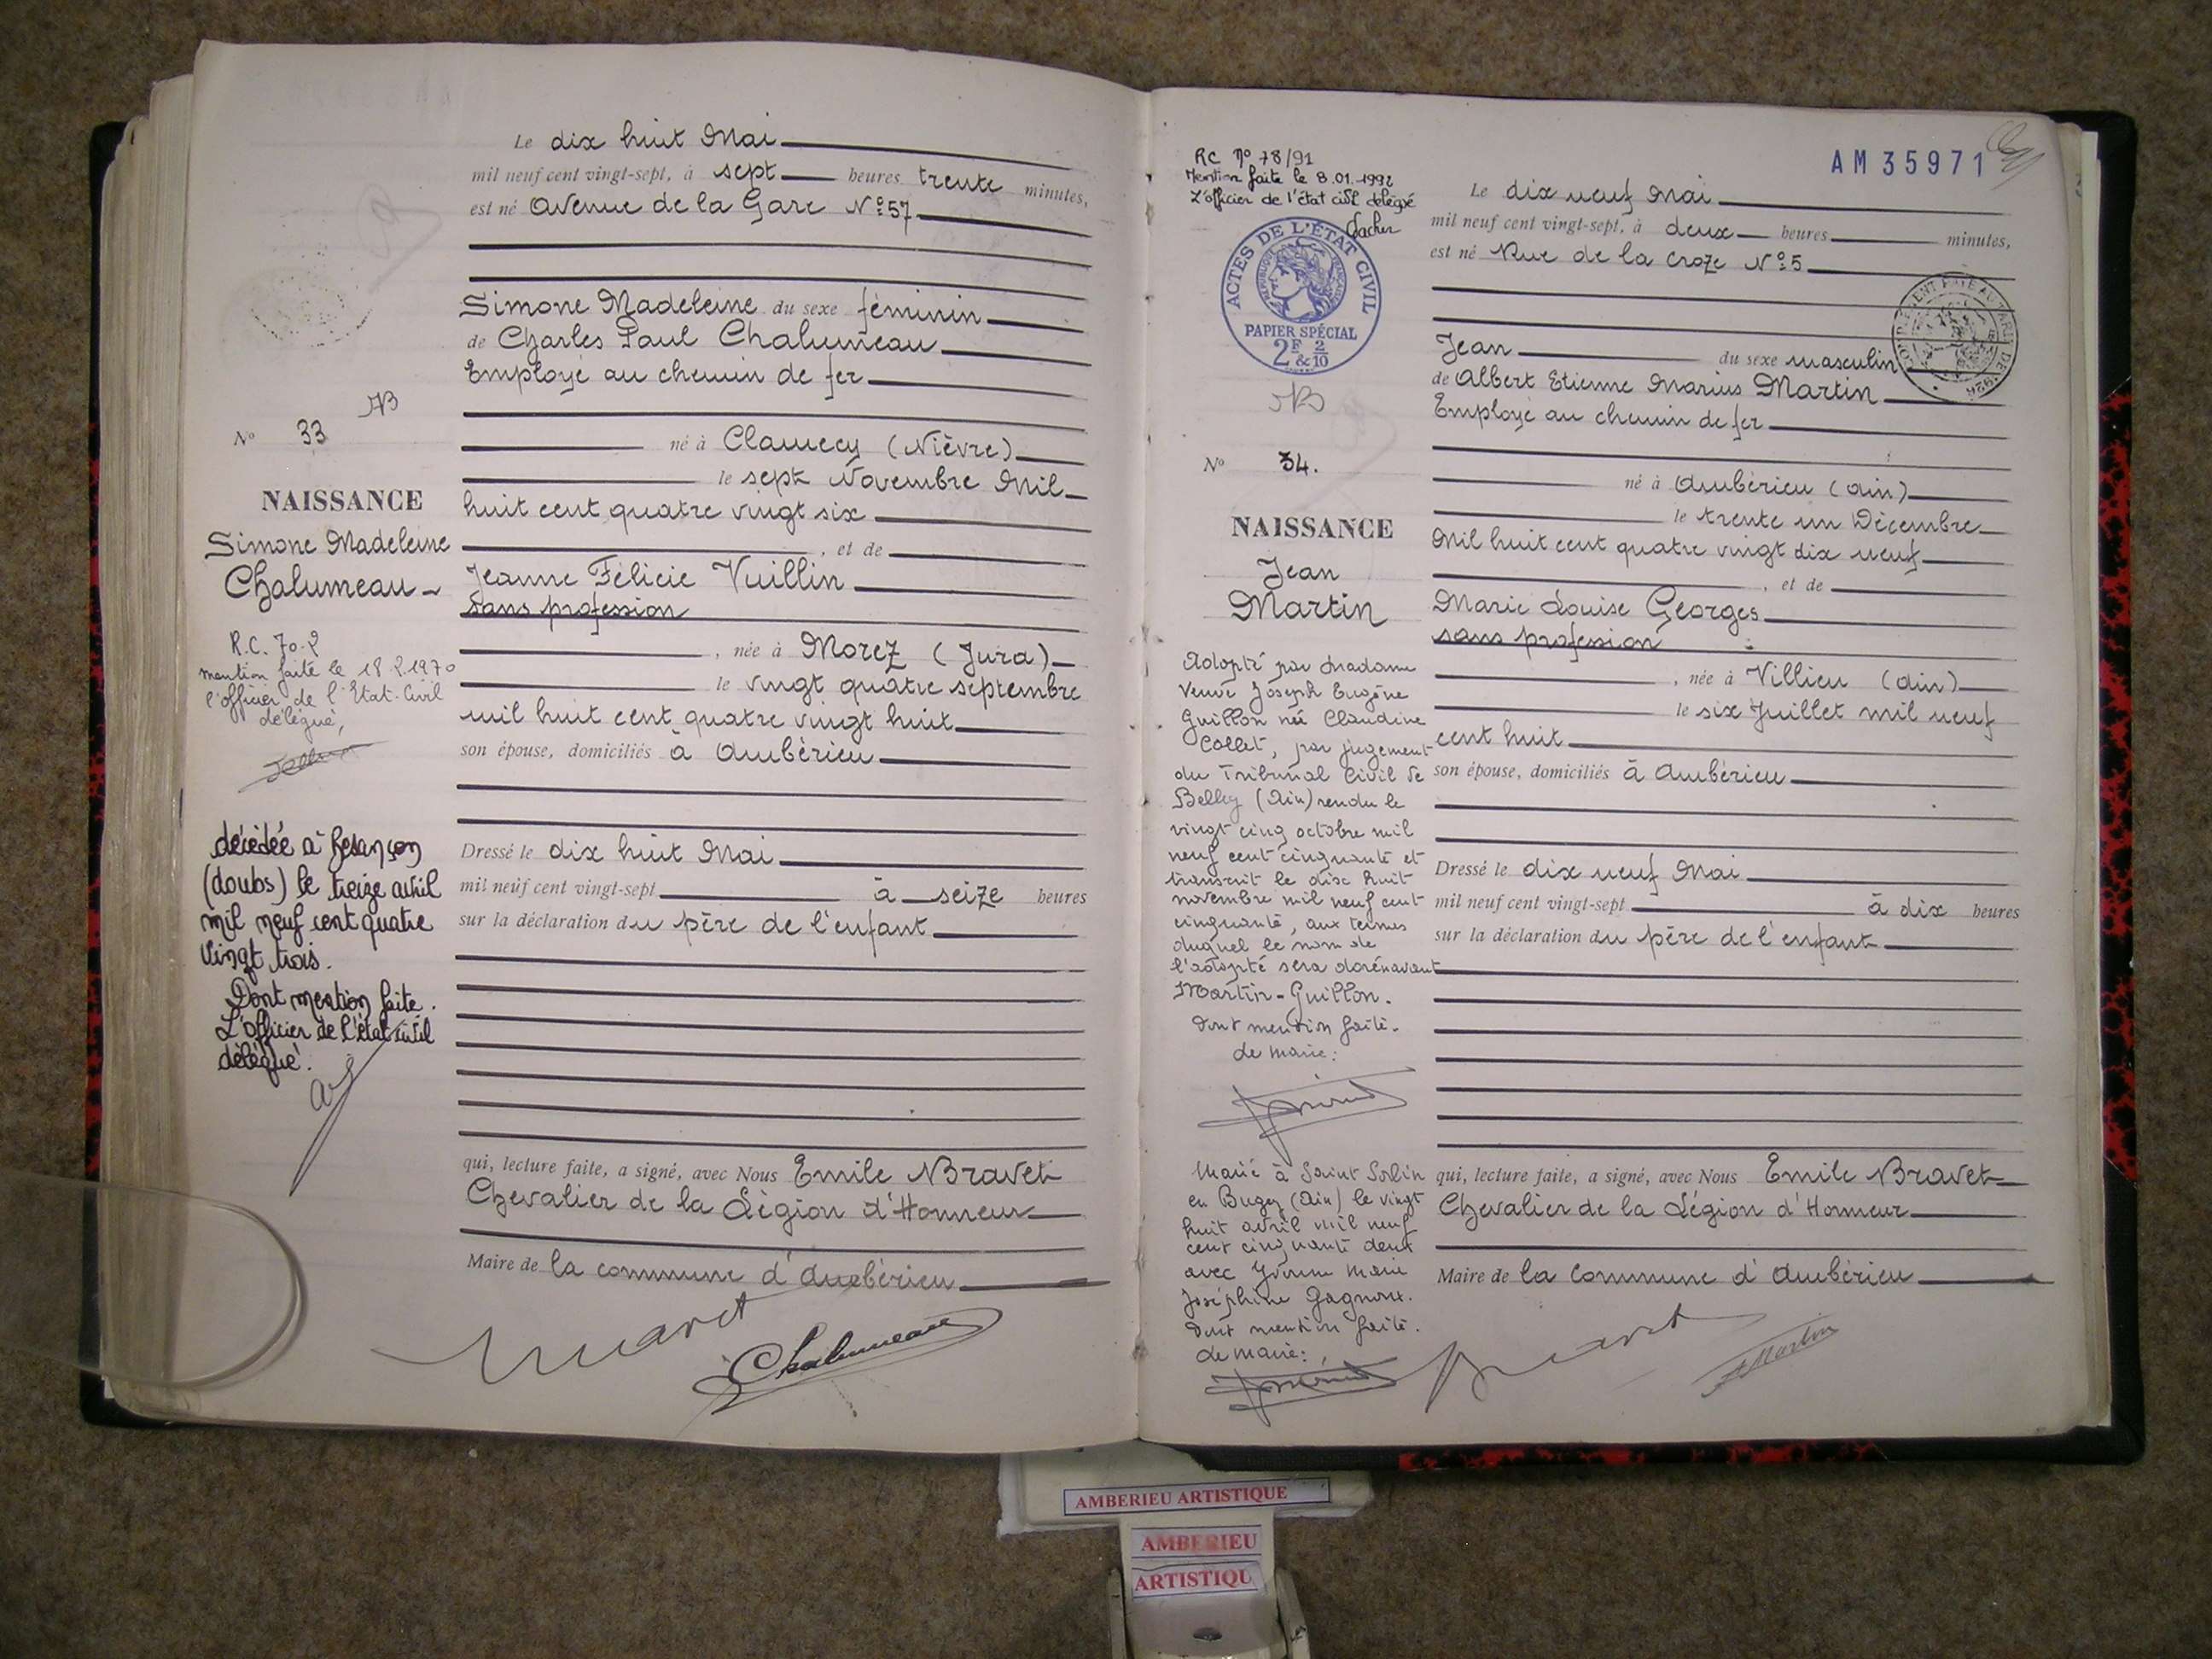 Le dix huit Mai
mil neuf cent vingt-sept, à sept heures trente minutes,
est né Avenue de la Gare N° 57
Simone Madeleine du sexe féminin
de Charles Paul Chalumeau
Employé au chemin de fer
né à Clamecy (Nièvre)
le sept Novembre Mil
huit cent quatre vingt six
, et de
Jeanne Félicie Vuillin
Sans profession
, née à Morez (Jura)
le vingt quatre septembre
mil huit cent quatre vingt huit
son épouse, domiciliés à Ambérieu
Dressé le dix huit Mai
mil neuf cent vingt-sept à seize heures
sur la déclaration du père de l'enfant
qui, lecture faite, a signé, avec Nous Emile Bravet
Chevalier de la Légion d'Honneur
Maire de la commune d'Ambérieu
Bravet
Chalumeau
AB
N° 33
NAISSANCE
Simone Madeleine
Chalumeau
R.C. 70-2
mention faite le 18.2.1970
l'officier de l'Etat-Civil
délégué,
décédée à Besançon
(doubs) le treize avril
mil neuf cent quatre
vingt trois.
Dont mention faite.
L'officier de l'état civil
délégué.
RC N° 78/91
Mention faite le 8.01.1992
L'officier de l'état civil délégué
ACTES DE L'ÉTAT CIVIL
RÉPUBLIQUE FRANÇAISE
PAPIER SPÉCIAL
2F 2
& 10
AB
N° 34.
NAISSANCE
Jean
Martin
Adopté par Madame
Veuve Joseph Eugène
Guillon née Claudine
Collet, par jugement
du Tribunal Civil de
Belley (Ain) rendu le
vingt cinq octobre mil
neuf cent cinquante et
transcrit le dix huit
novembre mil neuf cent
cinquante, aux termes
duquel le nom de
l'adopté sera dorénavant
Martin-Guillon.
Dont mention faite.
Le maire:
Marié à Saint Sorlin
en Bugey (Ain) le vingt
huit avril mil neuf
cent cinquante deux
avec Yvonne Marie
Joséphine Gagnoux.
Dont mention faite.
Le maire:
AM 35971
Le dix neuf Mai
mil neuf cent vingt-sept, à deux heures minutes,
est né Rue de la Croze N° 5
Jean du sexe masculin
de Albert Etienne Marius Martin
Employé au chemin de fer
né à Ambérieu (Ain)
le trente un Décembre
Mil huit cent quatre vingt dix neuf
, et de
Marie Louise Georges
sans profession
, née à Villieu (Ain)
le six Juillet mil neuf
cent huit
son épouse, domiciliés à Ambérieu
Dressé le dix neuf Mai
mil neuf cent vingt-sept à dix heures
sur la déclaration du père de l'enfant
qui, lecture faite, a signé, avec Nous Emile Bravet
Chevalier de la Légion d'Honneur
Maire de la Commune d'Ambérieu
Bravet
A Martin
AMBERIEU ARTISTIQUE
AMBERIEU
ARTISTIQU